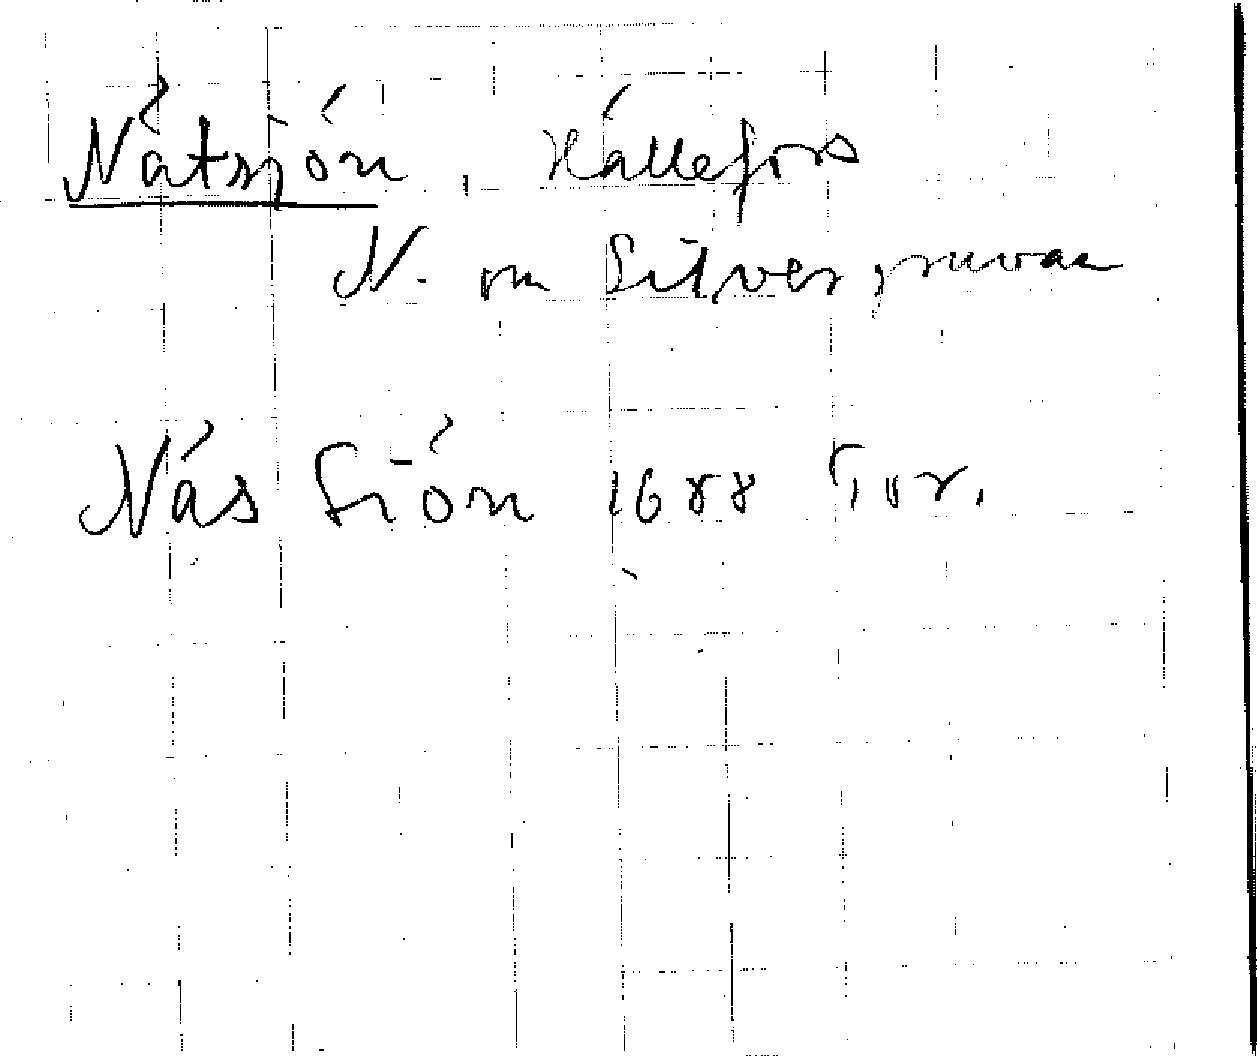 Nätsjön, Hällefors
N. om Silvergruvan
Näs Siön 1688